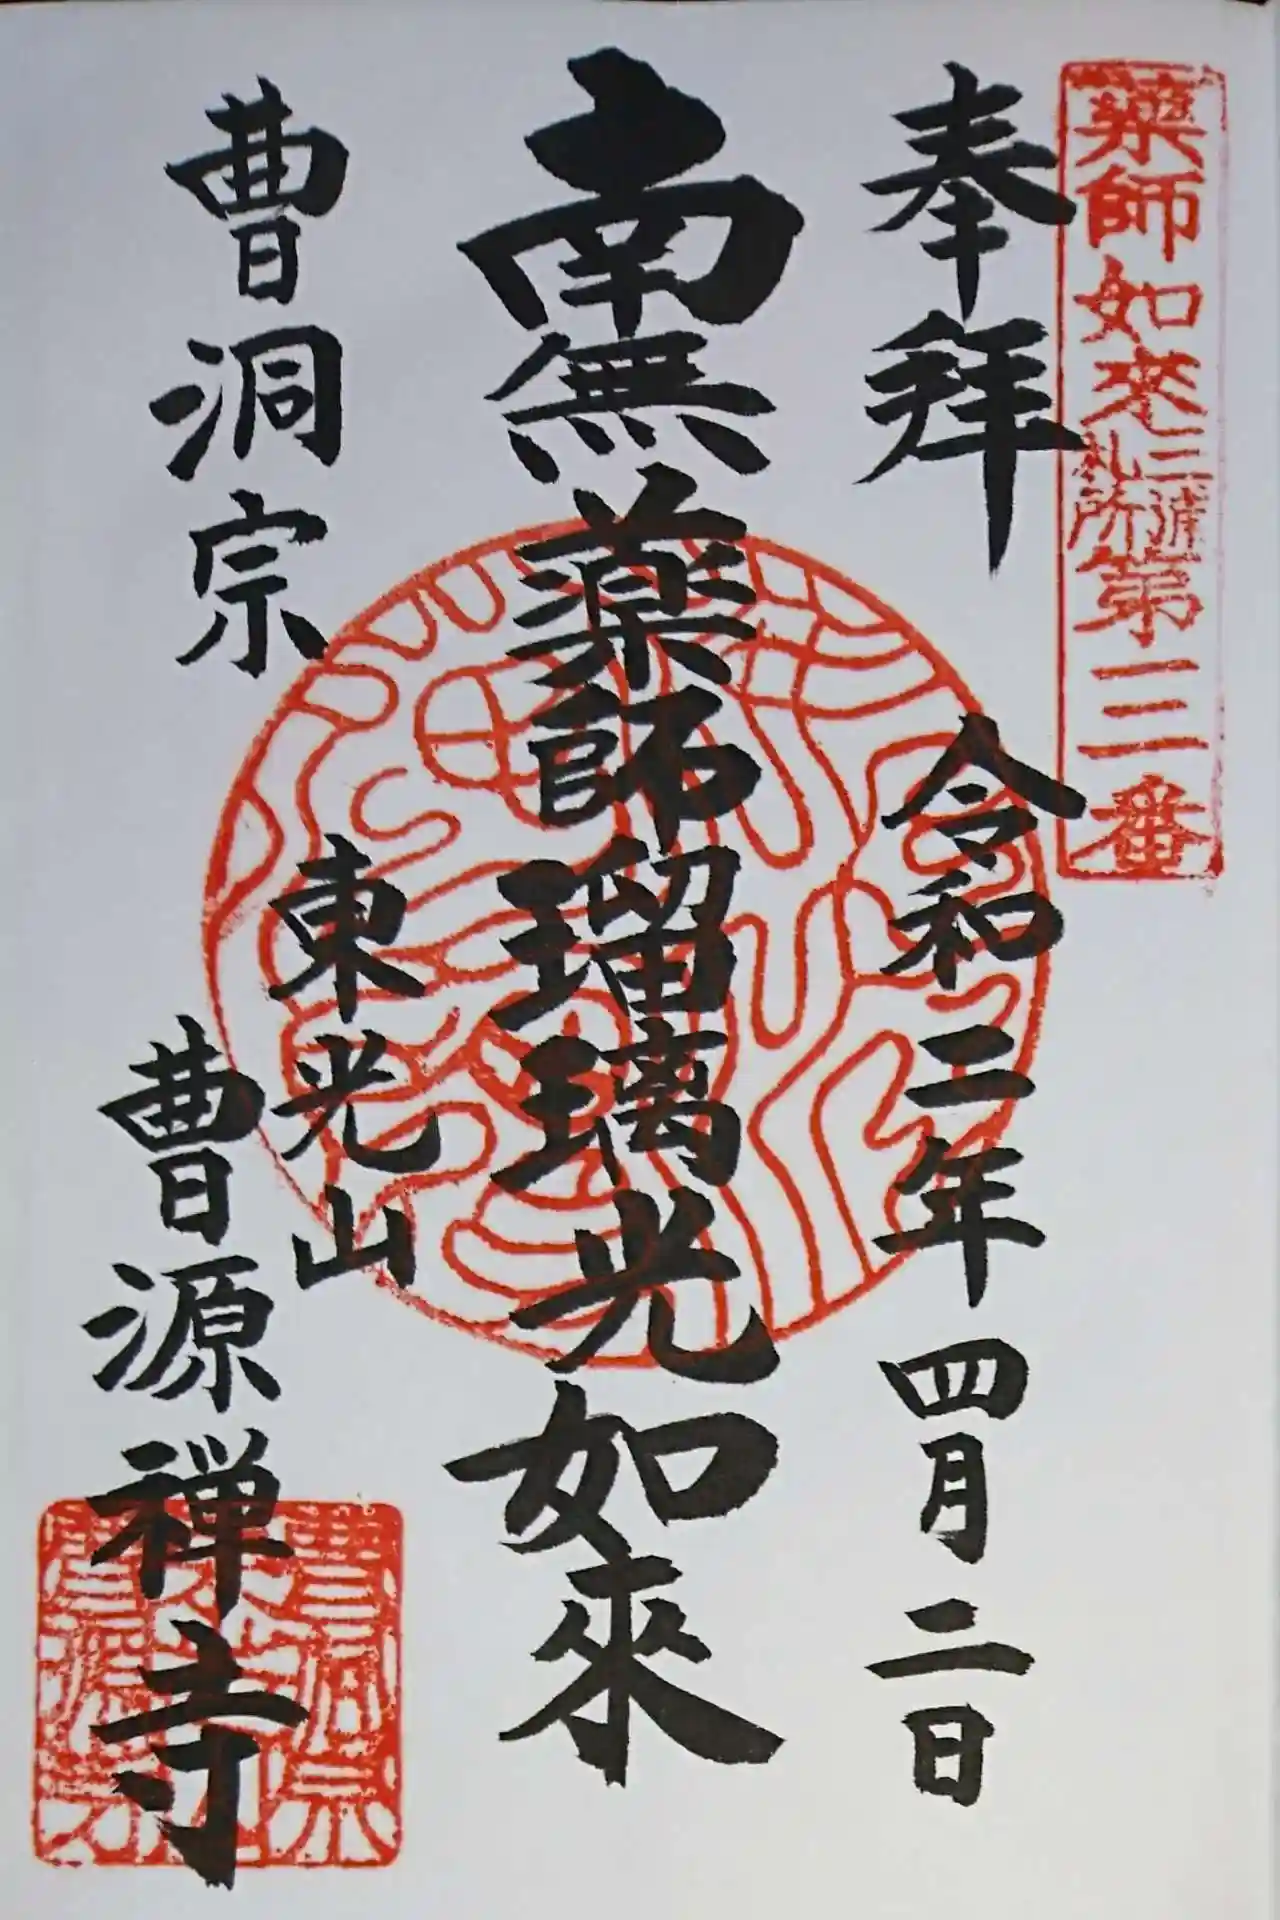 薬師如来三浦札所第三番
奉拝
令和二年四月二日
南無薬師瑠璃光如來
曹洞宗
東光山
曹源禅寺